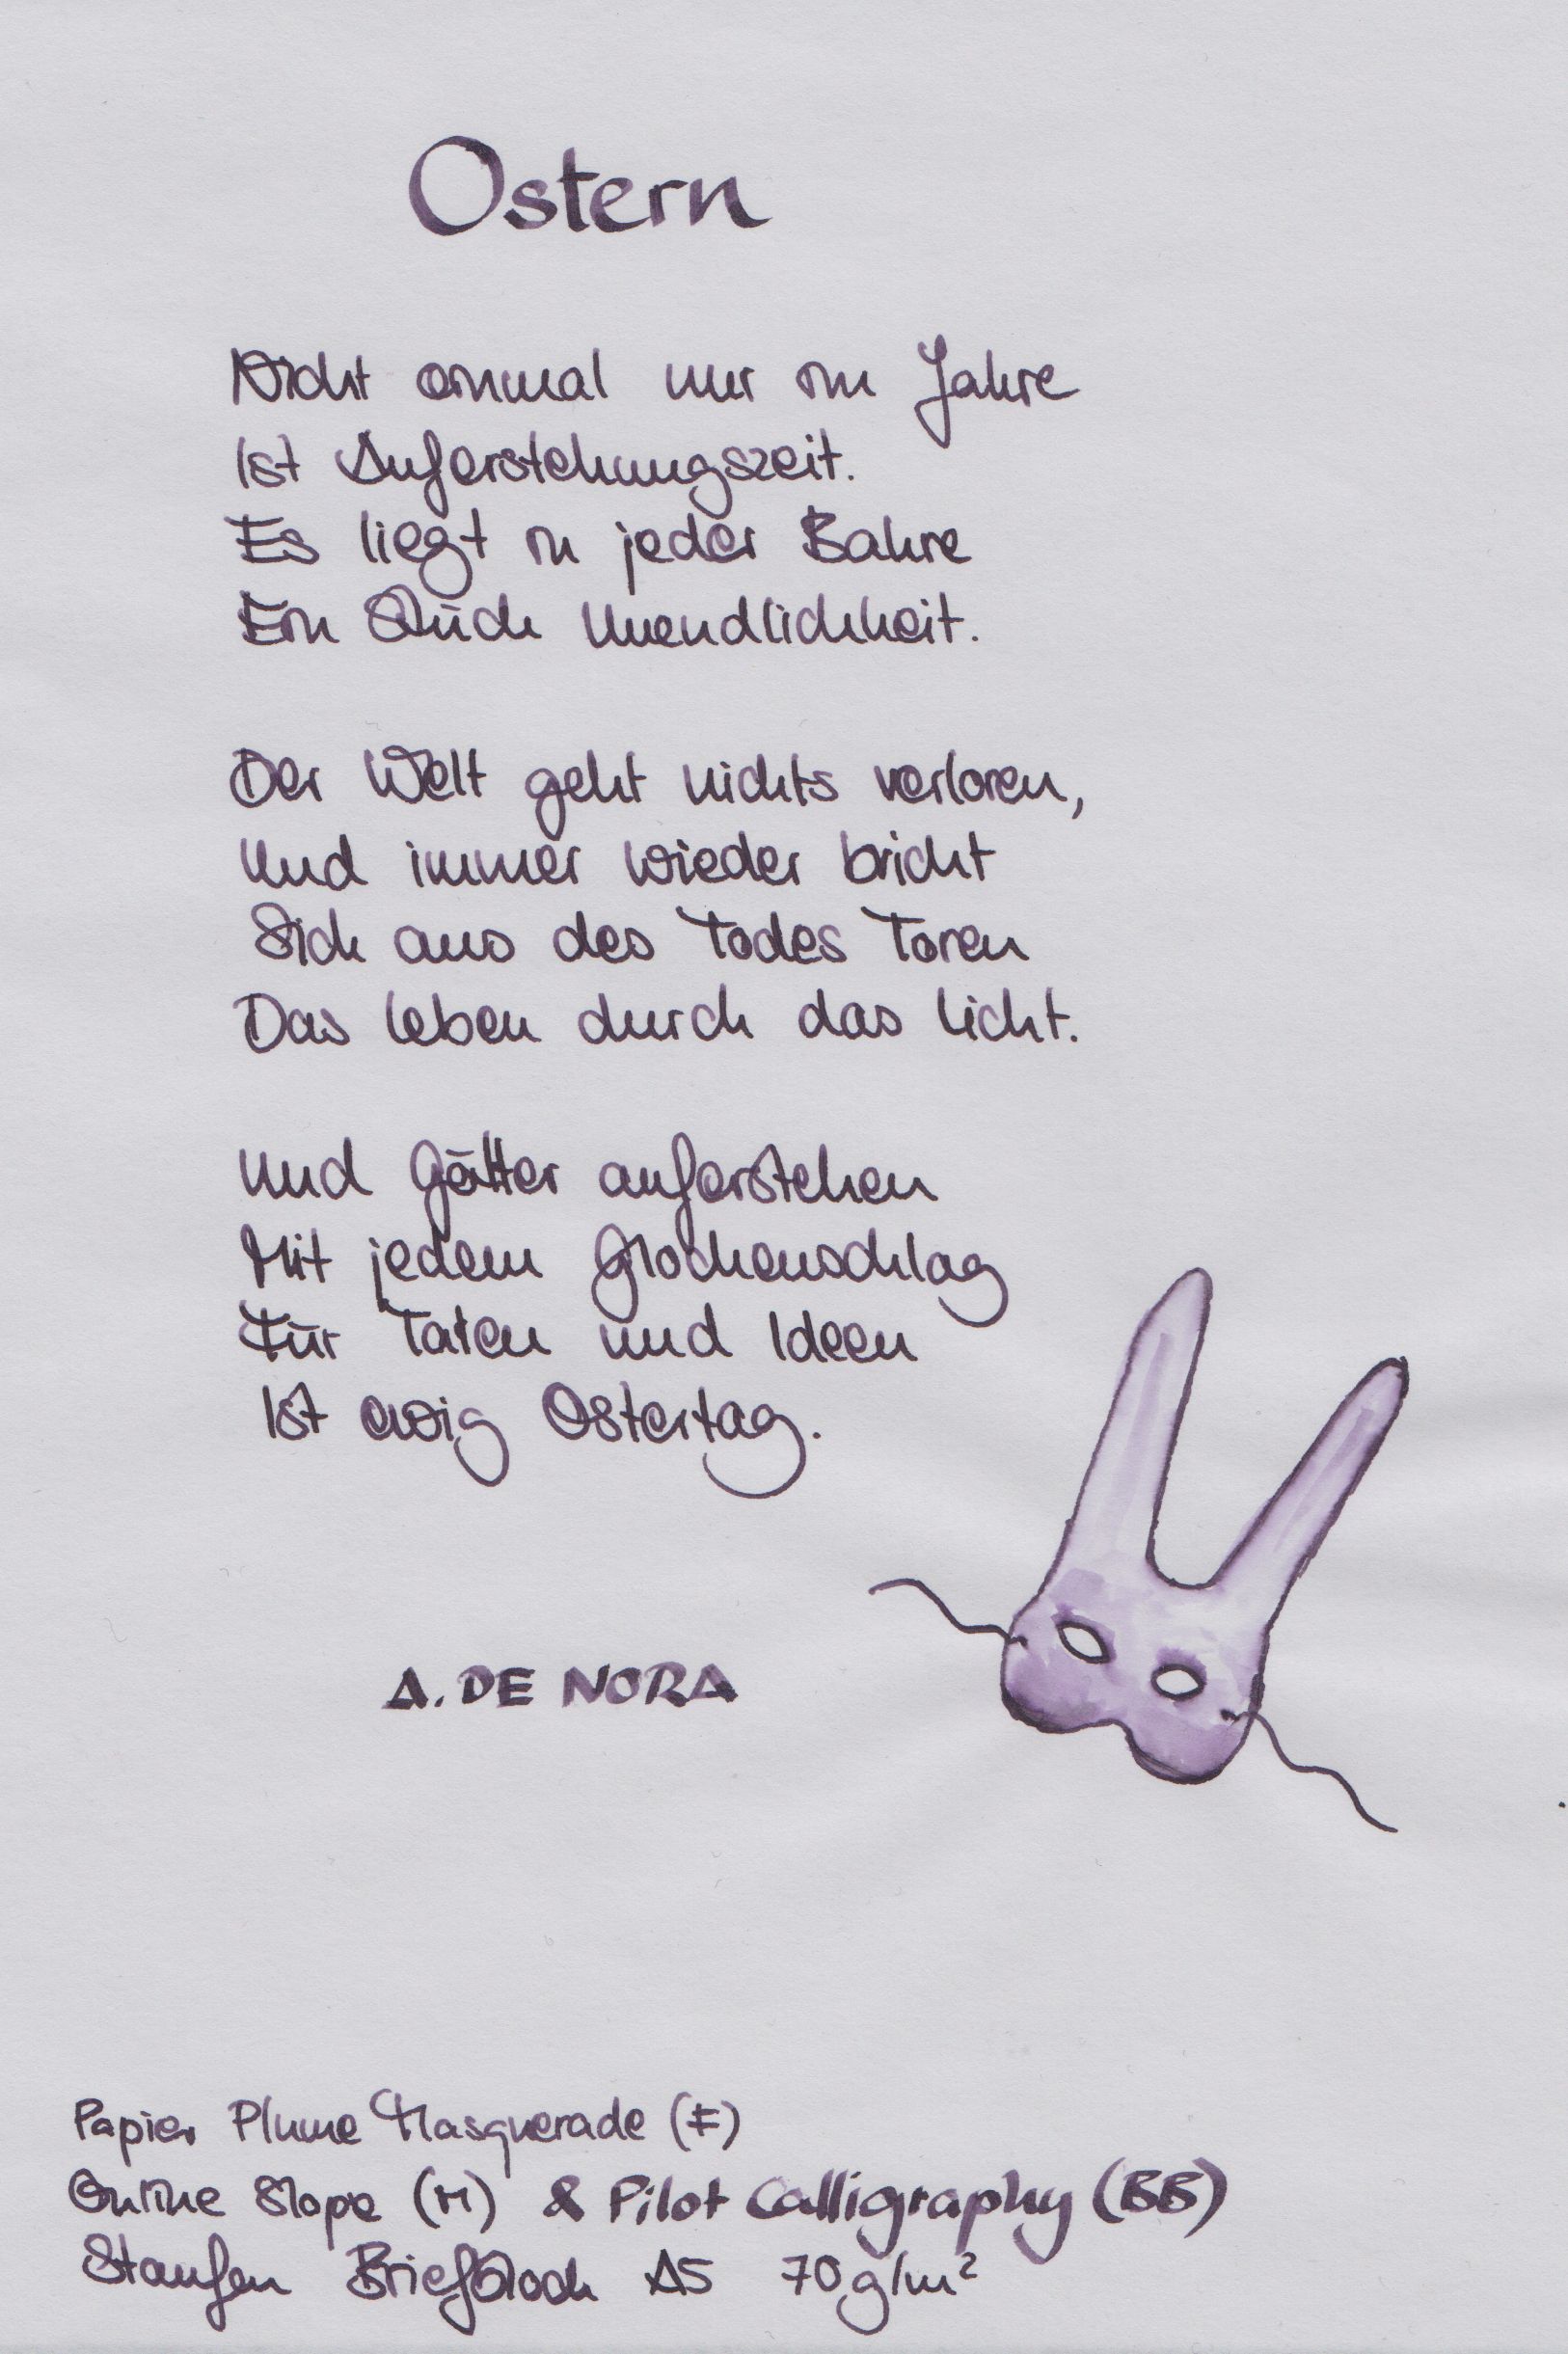 Ostern
Nicht einmal nur im Jahre
Ist Auferstehungszeit.
Es liegt in jeder Bahre
Ein Stück Unendlichkeit.
Der Welt geht nichts verloren,
Und immer wieder bricht
Sich aus des Todes Toren
Das Leben durch das Licht.
Und Götter auferstehen
Mit jedem Glockenschlag
Für Taten und Ideen
Ist ewig Ostertag.
A. DE NORA
Papier Plume Masquerade (F)
Online Slope (M) & Pilot Calligraphy (BB)
Staufen Briefblock A5 70 g/m²